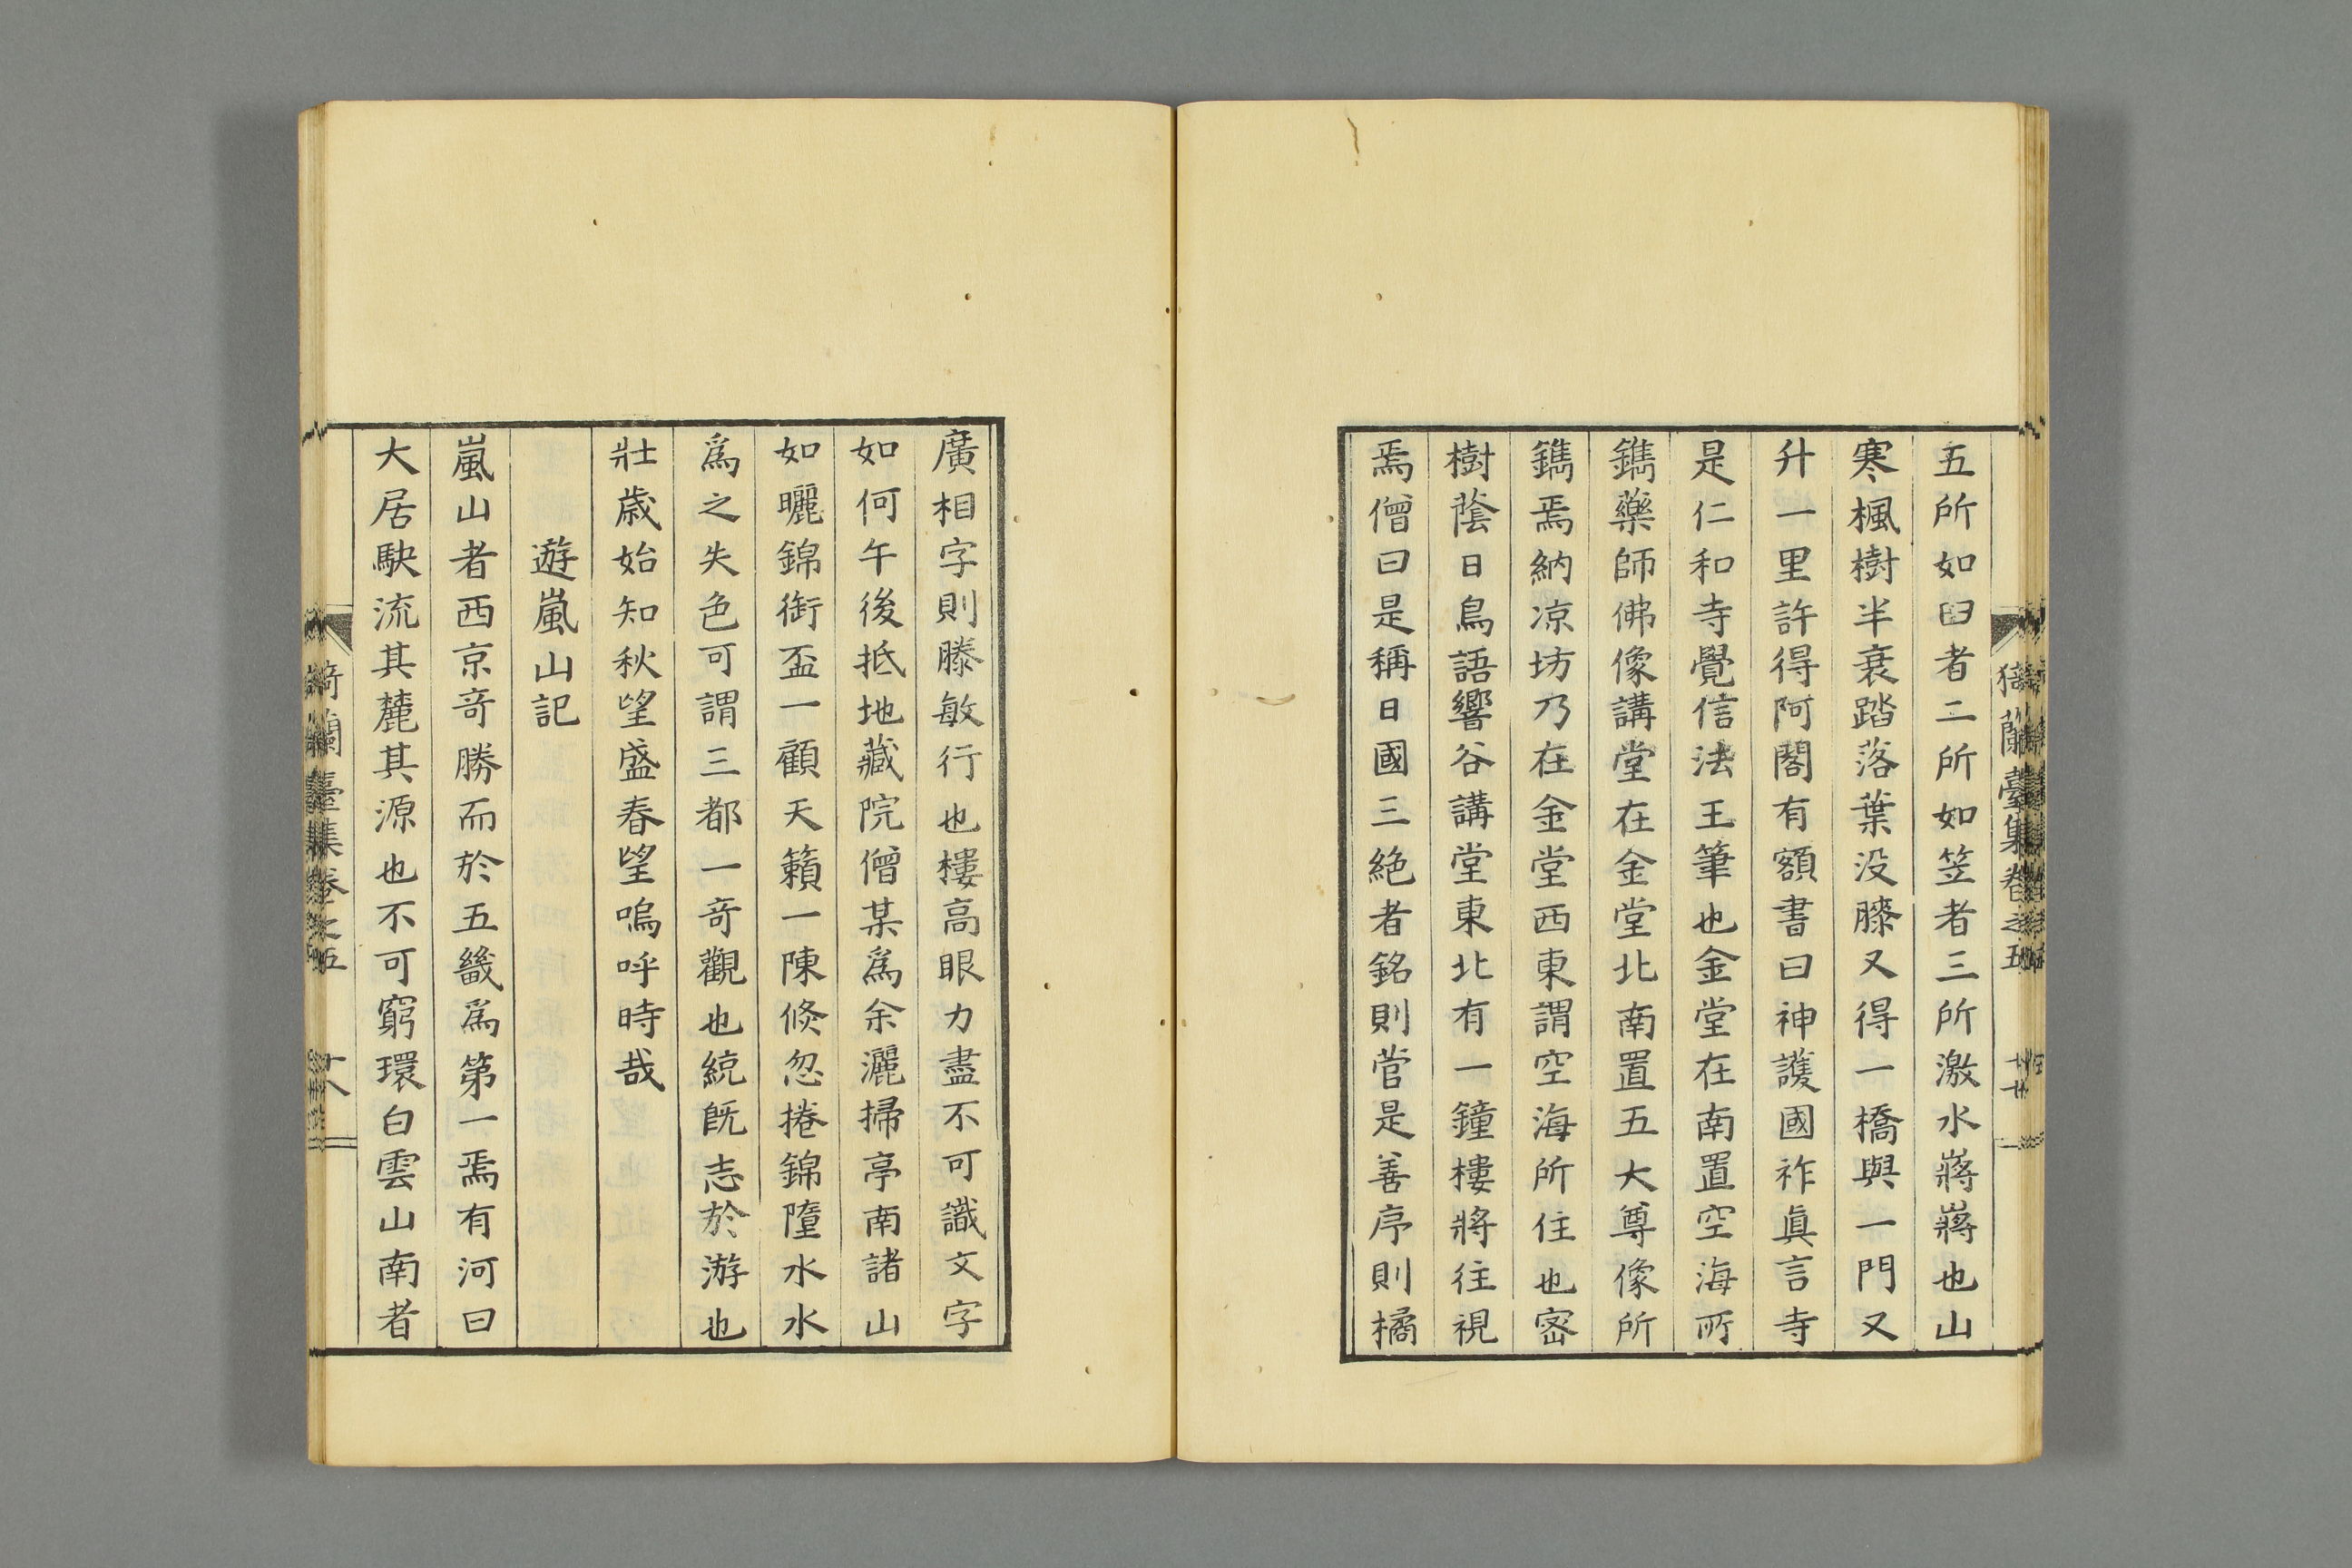 五所如臼者二所如笠者三所激水蔣蔣也山
寒楓樹半衰踏落葉没膝又得一橋與一門又
升一里許得阿閣有額書曰神護國祚眞言寺
是仁和寺覺信法王筆也金堂在南置空海所
鐫藥師佛像講堂在金堂北南置五大尊像所
鐫焉納凉坊乃在金堂西東謂空海所住也密
樹蔭日鳥語響谷講堂東北有一鐘樓將往視
焉僧曰是稱日國三絶者銘則菅是善序則橘
廣相字則滕敏行也樓高眼力盡不可識文字
如何午後抵地藏院僧某爲余灑掃亭南諸山
如曬錦街盃一顧天籟一陳倏忽捲錦墮水水
爲之失色可謂三都一奇觀也統旣志於游也
壯歳始知秋望盛春望嗚呼時哉
遊嵐山記
嵐山者西京奇勝而於五畿爲第一焉有河曰
大居駃流其麓其源也不可窮環白雲山南者
猗蘭臺集卷之五